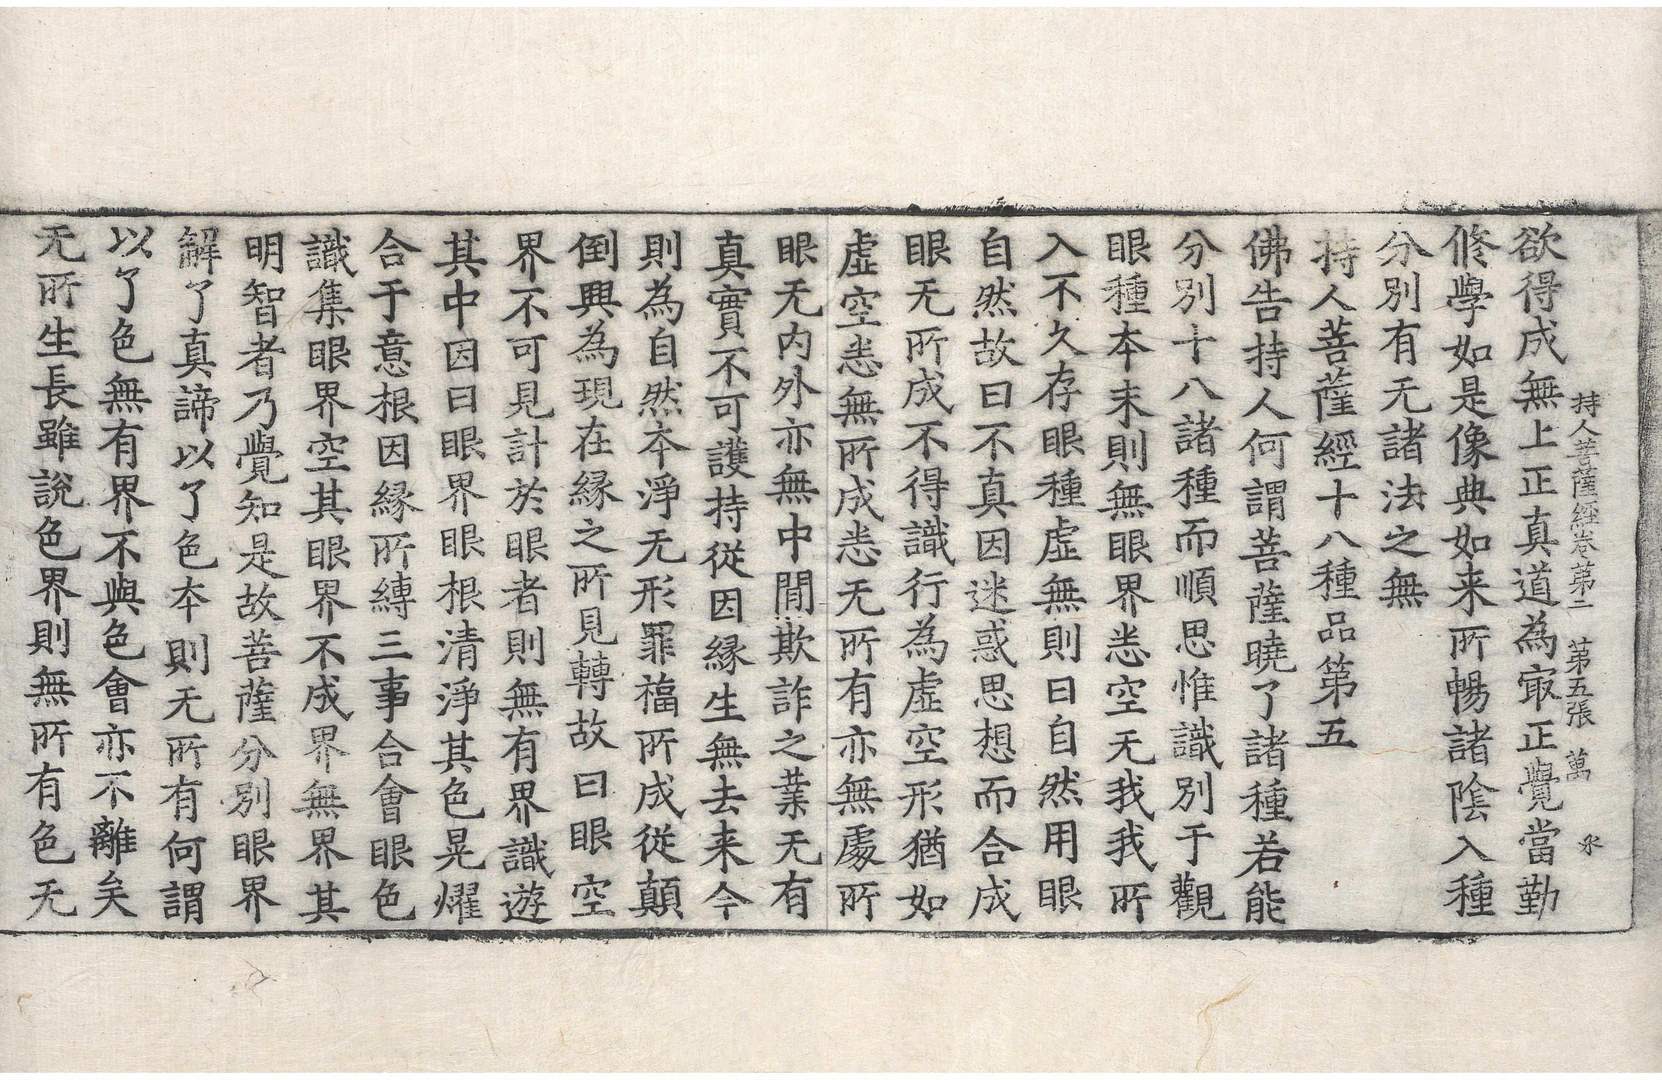 持人菩薩經卷第二　第五張　萬
欲得成無上正真道為㝡正覺當勤
脩學如是像典如来所暢諸陰入種
分別有无諸法之無
持人菩薩經十八種品第五
佛告持人何謂菩薩曉了諸種若能
分別十八諸種而順思惟識別于觀
眼種本末則無眼界恚空无我我所
入不久存眼種虛無則曰自然用眼
自然故曰不真因迷惑思想而合成
眼无所成不得識行為虛空形猶如
虛空恚無所成恚无所有亦無處所
眼无内外亦無中間欺詐之業无有
真實不可護持從因緣生無去来今
則為自然本淨无形罪福所成從顛
倒興為現在緣之所見轉故曰眼空
界不可見計於眼者則無有界識遊
其中因曰眼界眼根清淨其色晃燿
合于意根因緣所縛三事合會眼色
識集眼界空其眼界不成界無界其
明智者乃覺知是故菩薩分別眼界
解了真諦以了色本則无所有何謂
以了色無有界不與色會亦不離矣
无所生長雖說色界則無所有色无